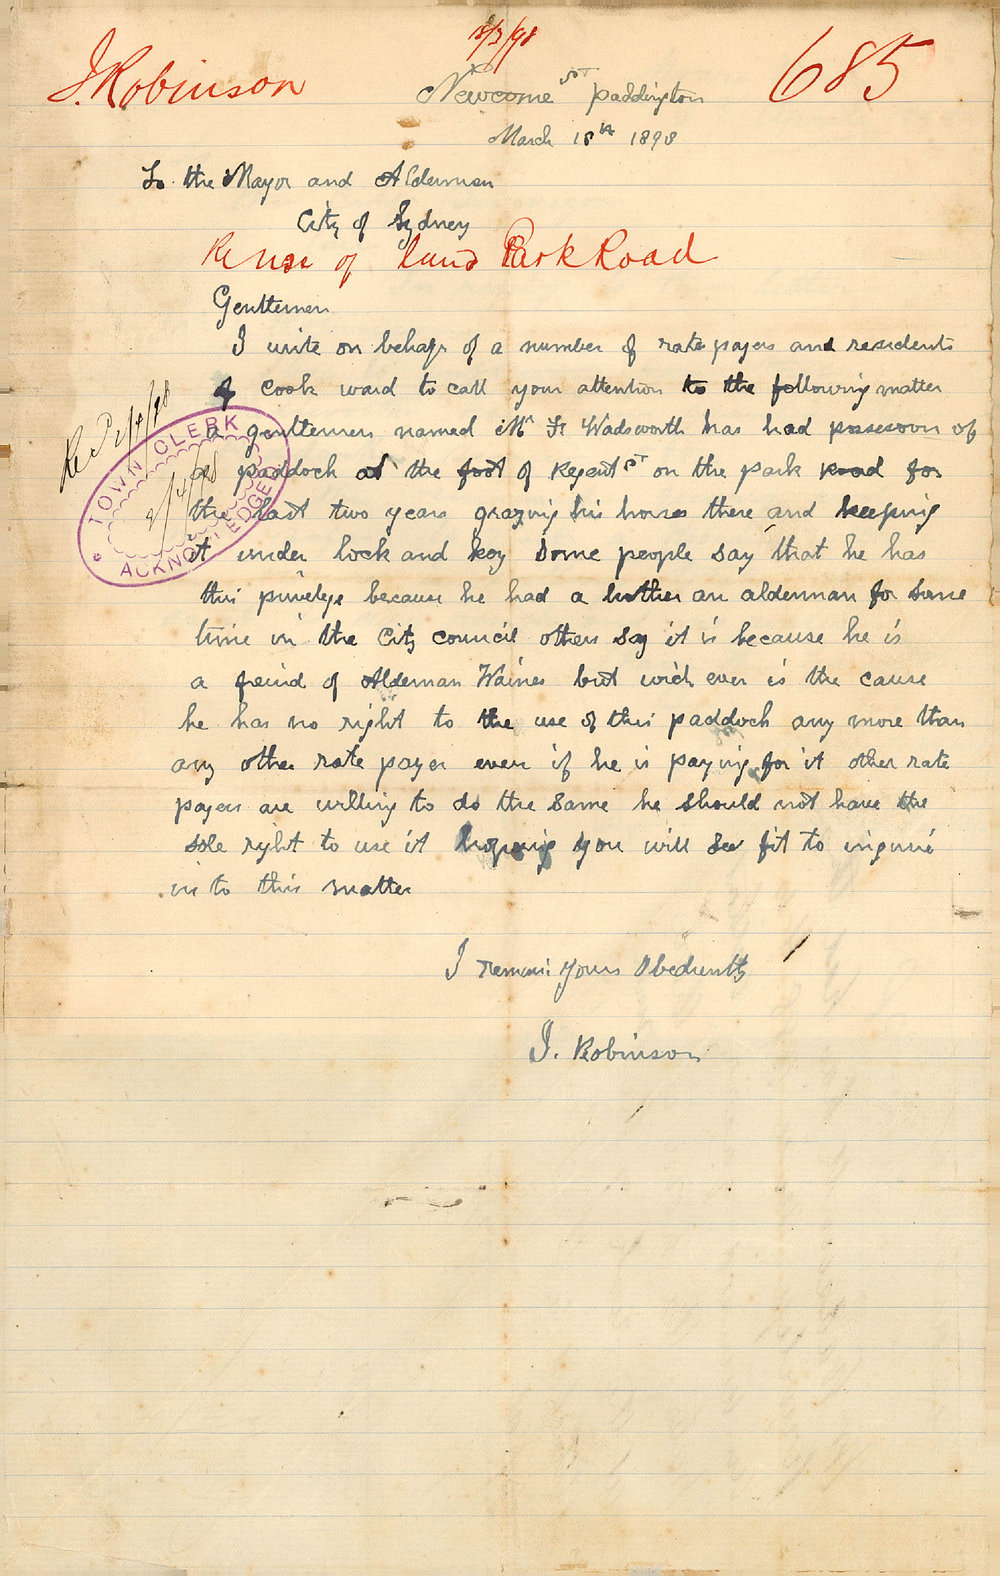 18/3/98
J. Robinson
685
Newcome St Paddington
March 18th 1898
To the Mayor and Aldermen
City of Sydney
Re use of land Park Road
Gentlemen
I write on behalf of a number of rate payers and residents
of Cook ward to call your attention to the following matter
a gentlemen named Mr Wadsworth has had possesson of
a paddock at the foot of Regent St on the park road for
the last two years grazing his horses there and keeping
it under lock and key Some people say that he has
this privelge because he had a brother an alderman for some
time in the City council others say it is because he is
a freind of Alderman Waines but wich ever is the cause
he has no right to the use of this paddock any more than
any other rate payer even if he is paying for it other rate
payers are willing to do the same he should not have the
sole right to use it hopeing you will see fit to inquire
in to this matter
I remain Yours Obediently
J. Robinson
TOWN CLERK
2/4/98
ACKNOWLEDGED